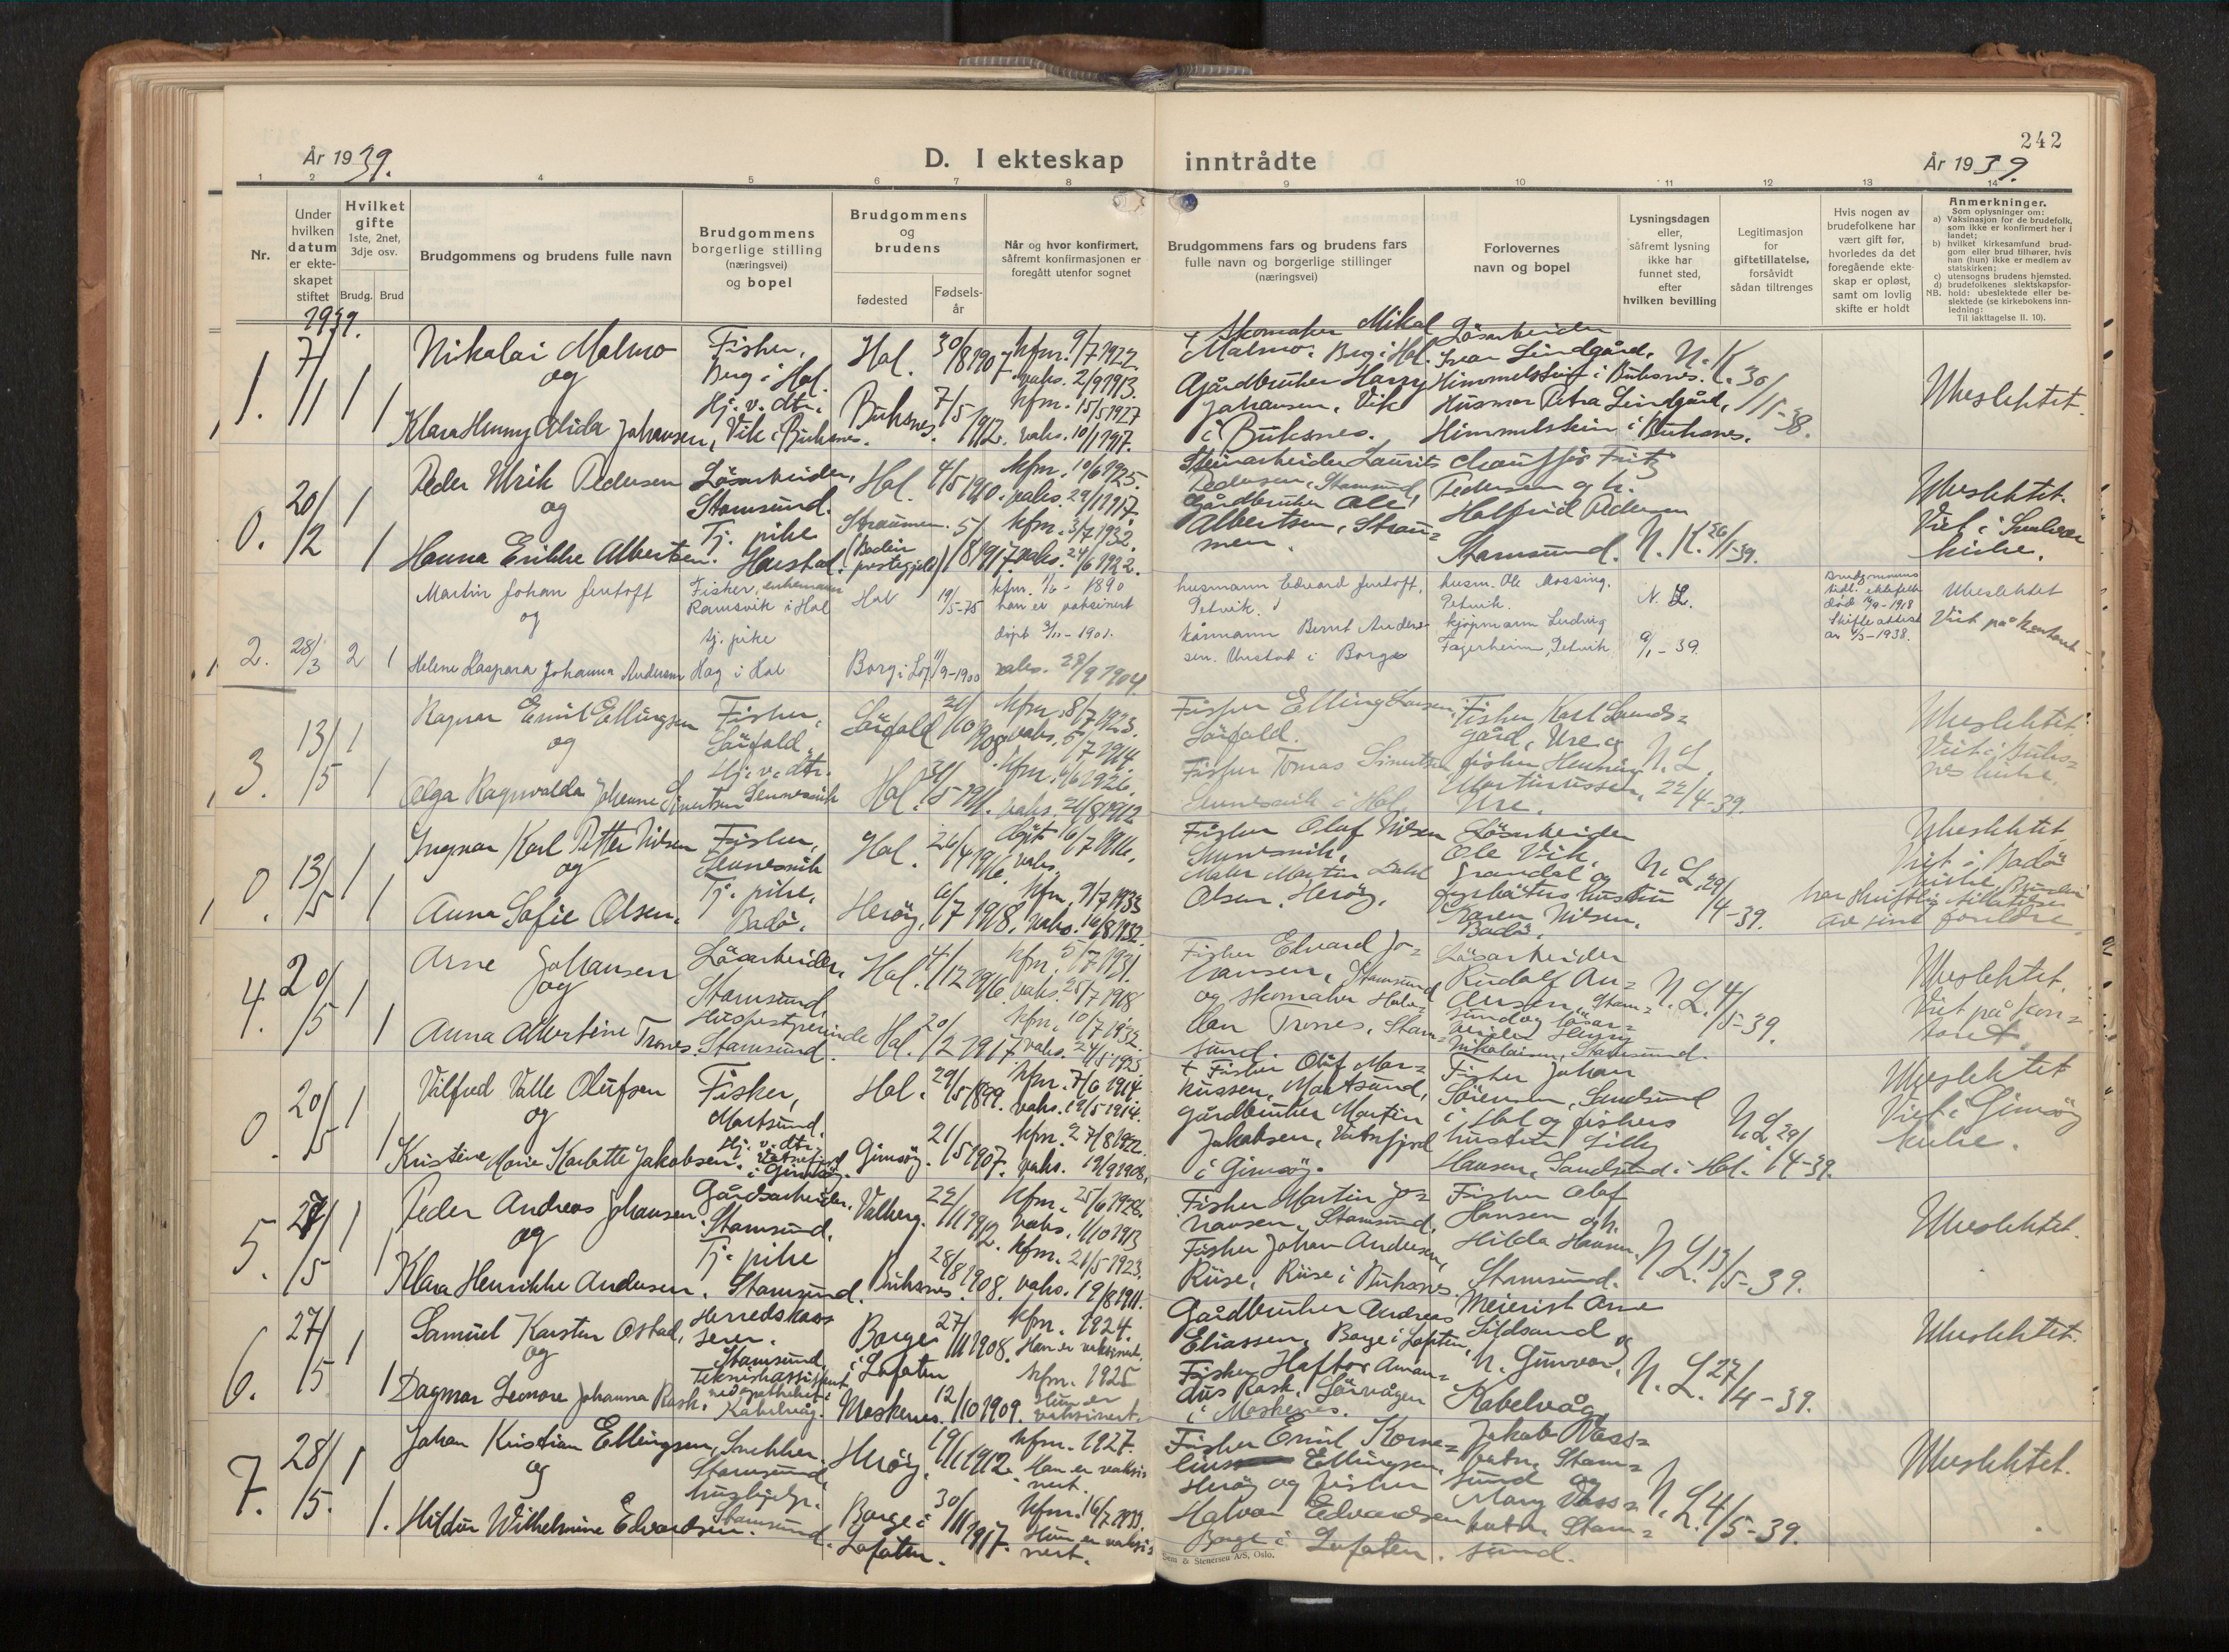 242
År 1939.
D. I ekteskap inntrådte
År 1939.
1 2 4 5 6 7 8 9 10 11 12 13 14
Nr.
Under hvilken datum er ekteskapet stiftet
Hvilket gifte
1ste, 2net, 3dje osv.
Brudg. Brud
Brudgommens og brudens fulle navn
Brudgommens borgerlige stilling (næringsvei) og bopel
Brudgommens og brudens
fødested
Fødsels-år
Når og hvor konfirmert, såfremt konfirmasjonen er foregått utenfor sognet
Brudgommens fars og brudens fars fulle navn og borgerlige stillinger (næringsvei)
Forlovernes navn og bopel
Lysningsdagen eller, såfremt lysning ikke har funnet sted, efter hvilken bevilling
Legitimasjon for giftetillatelse, forsåvidt sådan tiltrenges
Hvis nogen av brudefolkene har vært gift før, hvorledes da det foregående ekteskap er opløst, samt om lovlig skifte er holdt
Anmerkninger.
Som oplysninger om:
a) Vaksinasjon for de brudefolk, som ikke er konfirmert her i landet;
b) hvilket kirkesamfund brudgom eller brud tilhører, hvis han (hun) ikke er medlem av statskirken;
c) utensogns brudens hjemsted.
d) brudefolkenes slektskapsforhold: ubeslektede eller beslektede (se kirkebokens innledning:
NB.
Til iakttagelse II. 10).
1939.
1. 7/11 1 1
Nikolai Malmo
og
Klara Henny Alida Johansen,
Fisker,
Berg i Hol.
Hj. v. dtr.
Vik i Buksnes.
Hol. 30/8 1907
Buksnes. 7/5 1912.
kfm. 9/7 1922
vaks. 2/9 1913.
kfm. 15/5 1927
vaks. 10/1 1917.
† Skomaker Mikal
Malmo. Berg i Hol.
Gårdbruker Harry
Johansen, Vik
i Buksnes.
Løsarbeider
Ivar Lindgård,
Himmelstein i Buksnes.
Husmor Petra Lindgård,
Himmelstein i Buksnes.
N. K. 30/11-38.
Ubeslektet.
0. 20/12 1 1
Peder Ulrik Pedersen
og
Hanna Erikke Albertsen.
Løsarbeider,
Stamsund.
Tj. pike
Harstad.
Hol. 4/5 1910.
Straumen. (Bodin prestegjeld) 5/8 1917.
kfm. 10/6 1925.
vaks. 29/1 1917.
kfm. 3/7 1932.
vaks. 24/6 1922.
Steinarbeider Laurits
Pedersen, Stamsund,
Gårdbruker Ole
Albertsen, Strau=
men.
Chauffør Fritz
Pedersen og h.
Halfrid Pedersen
Stamsund.
N. K. 26/1-39.
Ubeslektet.
Viet i
kirke.
2. 28/3 2 1
Martin Johan Jentoft
og
Helene Kaspara Johanna Andersen
Fisker, enkemann
Ramsvik i Hol
tj. pike
Hag i Hol
Hol 19/5-75
Borg i Lof. 11/9-1900
kfm. 1/6 - 1890
han er vaksinert
døpt 3/11 - 1901.
vaks. 28/9 1904
husmann Edvard Jentoft,
Petvik.
kårmann Bernt Anders-
sen. Unstad i Borge
husm. Ole Mossing.
Petvik.
kjøpmann Ludvig
Fagerheim, Petvik
N. L.
9/1 - 39.
Brudgommens
tidl. ektefelle
død 14/9-1918
Skifteattest
av 4/3-1938.
Ubeslektet
Viet på kontoret
3. 13/5 1 1
Ragnar Emil Ellingsen
og
Olga Ragnvalda Johanne Simertsen
Fisker,
Sørfold.
Hj. v. dtr.
Sennesvik
Sørfold 21/10 1908.
Hol. 31/5 1911.
kfm. 8/7 1923.
vaks. 5/7 1914.
kfm. 6/6 1926.
vaks. 21/8 1912
Fisker Elling Larsen,
Sørfold.
Fisker Tomas Simertsen
Sennesvik i Hol.
Fisker Karl Lunds=
gård, Ure og
fisker Henning
Martinussen,
Ure.
N. L.
22/4-39.
Ubeslektet.
Viet i Buks=
nes kirke.
0. 13/5 1 1
Ingvar Karl Petter Nilsen
og
Anna Sofie Olsen.
Fisker,
Sennesvik
Tj. pike,
Bodø.
Hol. 26/4 1916.
Herøy. 6/7 1918.
døpt 16/7 1916.
vaks.
kfm. 9/7 1933
vaks. 16/8 1932.
Fisker Olaf Nilsen
Sennesvik.
Maler Martin Dahl
Olsen, Herøy.
Løsarbeider
Ole Vik,
Grandal og
fyrbøters hustru
Karen Nilsen,
Bodø.
N. L. 29/4-39.
Ubeslektet
Viet i Bodø
kirke. Bruden
har skriftlig tillatelse
av sine foreldre.
4. 20/5 1 1
Arne Johansen
og
Anna Albertine Trones.
Løsarbeider,
Stamsund
Husbestyrerinde
Stamsund.
Hol. 4/12 1916.
Hol. 20/2 1917
kfm. 5/7 1931.
vaks. 25/7 1918
kfm. 10/7 1932.
vaks. 24/5 1923
Fisker Edvard Jo=
hansen, Stamsund
og skomaker Hal=
dan Trones, Stam=
sund.
Løsarbeider
Rudolf An=
dersen, Stam=
sund og løsar=
beider Henry
Nikolaisen, Stamsund.
N. L. 4/5-39.
Ubeslektet.
Viet på kon=
toret.
0. 20/5 1 1
Vilfred Valle Olufsen
og
Kristine Marie Karlotte Jakobsen.
Fisker,
Mortsund.
Hj. v. dtr.
Vatnfjord
i Gimsøy.
Hol. 29/5 1899.
Gimsøy. 21/5 1907.
kfm. 7/6 1914.
vaks. 19/5 1914.
kfm. 27/8 1922.
vaks. 19/9 1908.
† Fisker Oluf Mar=
kussen, Mortsund,
Gårdbruker Martin
Jakobsen, Vatnfjord
i Gimsøy.
Fisker Johan
Sørensen, Sandsund
i Hol og fiskers
hustru Lilly
Hansen, Sandsund i Hol.
N. L. 29/4-39.
Ubeslektet
Viet i Gimsøy
kirke.
5. 27/5 1 1
Peder Andreas Johansen.
og
Klara Henrikke Andersen.
Gårdsarbeider.
Stamsund.
Tj. pike
Stamsund.
Valberg. 22/11 1912.
Buksnes. 28/8 1908.
kfm. 25/6 1928.
vaks. 1/10 1913
kfm. 21/5 1923.
vaks. 19/8 1911.
Fisker Martin Jo=
hansen, Stamsund,
Fisker Johan Andersen,
Riise, Riise i Buksnes.
Fisker Olaf
Hansen og h.
Hilda Hansen.
Stamsund.
N. L. 13/5-39.
Ubeslektet.
6. 27/5 1 1
Samuel Karsten Ostad,
og
Dagmar Leonore Johanna Rask.
Herredskas
serer.
Stamsund,
Teknisk assistent
ved apotheket i
Kabelvåg.
Borge i Lofoten 27/11 1908.
Moskenes. 12/10 1909.
kfm. 1924.
Han er vaksinert.
kfm. 1925
Hun er
vaksinert.
Gårdbruker Andreas
Eliassen, Borge i Lofoten,
Fisker Haftor Aman=
dus Rask, Sørvågen
i Moskenes.
Meierist Arne
Sildsand og
h. Gunvor,
Kabelvåg
N. L. 27/4-39.
Ubeslektet.
7. 28/5. 1 1.
Johan Kristian Ellingsen,
og
Hildur Wilhelmine Edvardsen.
Snekker.
Stamsund,
hushjelp.
Stamsund.
Herøy. 19/1 1912.
Borge i Lofoten. 30/11 1917.
kfm. 1927.
Han er vaksi=
nert.
kfm. 16/7 1933.
Hun er vaksi=
nert.
Fisker Emil Korne=
lius Ellingsen,
Herøy og fisker
Halvor Edvardsen
Borge i Lofoten.
Jakob Vass=
botn, Stam=
sund og
Mary Vass=
botn, Stam=
sund.
N. L. 4/5-39.
Ubeslektet.
Sem & Stenersen A/S, Oslo.